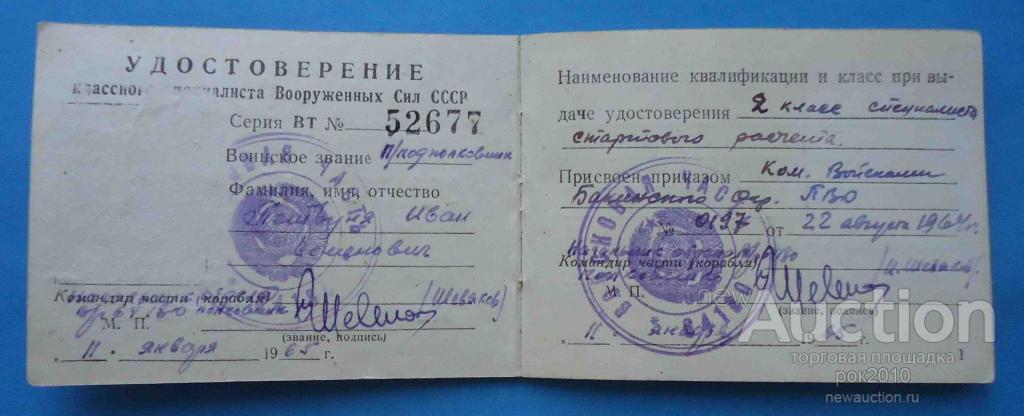 УДОСТОВЕРЕНИЕ
классного специалиста Вооруженных Сил СССР
Серия ВТ № 52677
Воинское звание п/подполковник
Фамилия, имя, отчество
Иван
Семенович
Командир части (корабля)
полковник
(Шеваков)
М. П.
(звание, подпись)
„ 11 „ января 1965 г.
Наименование квалификации и класс при вы-
даче удостоверения 2 класс специалиста
стартового расчета.
Присвоен приказом Ком. Войсками
Бакинского Окр. ПВО
№ 0197 от 22 августа 1964 г.
Командир части (корабля)
(И. Шеваков)
М. П.
(звание, подпись)
„ 11 „ января 1965 г.
1
ВОЙСКОВАЯ ЧАСТЬ
newAuction
торговая площадка
рок2010
newauction.ru